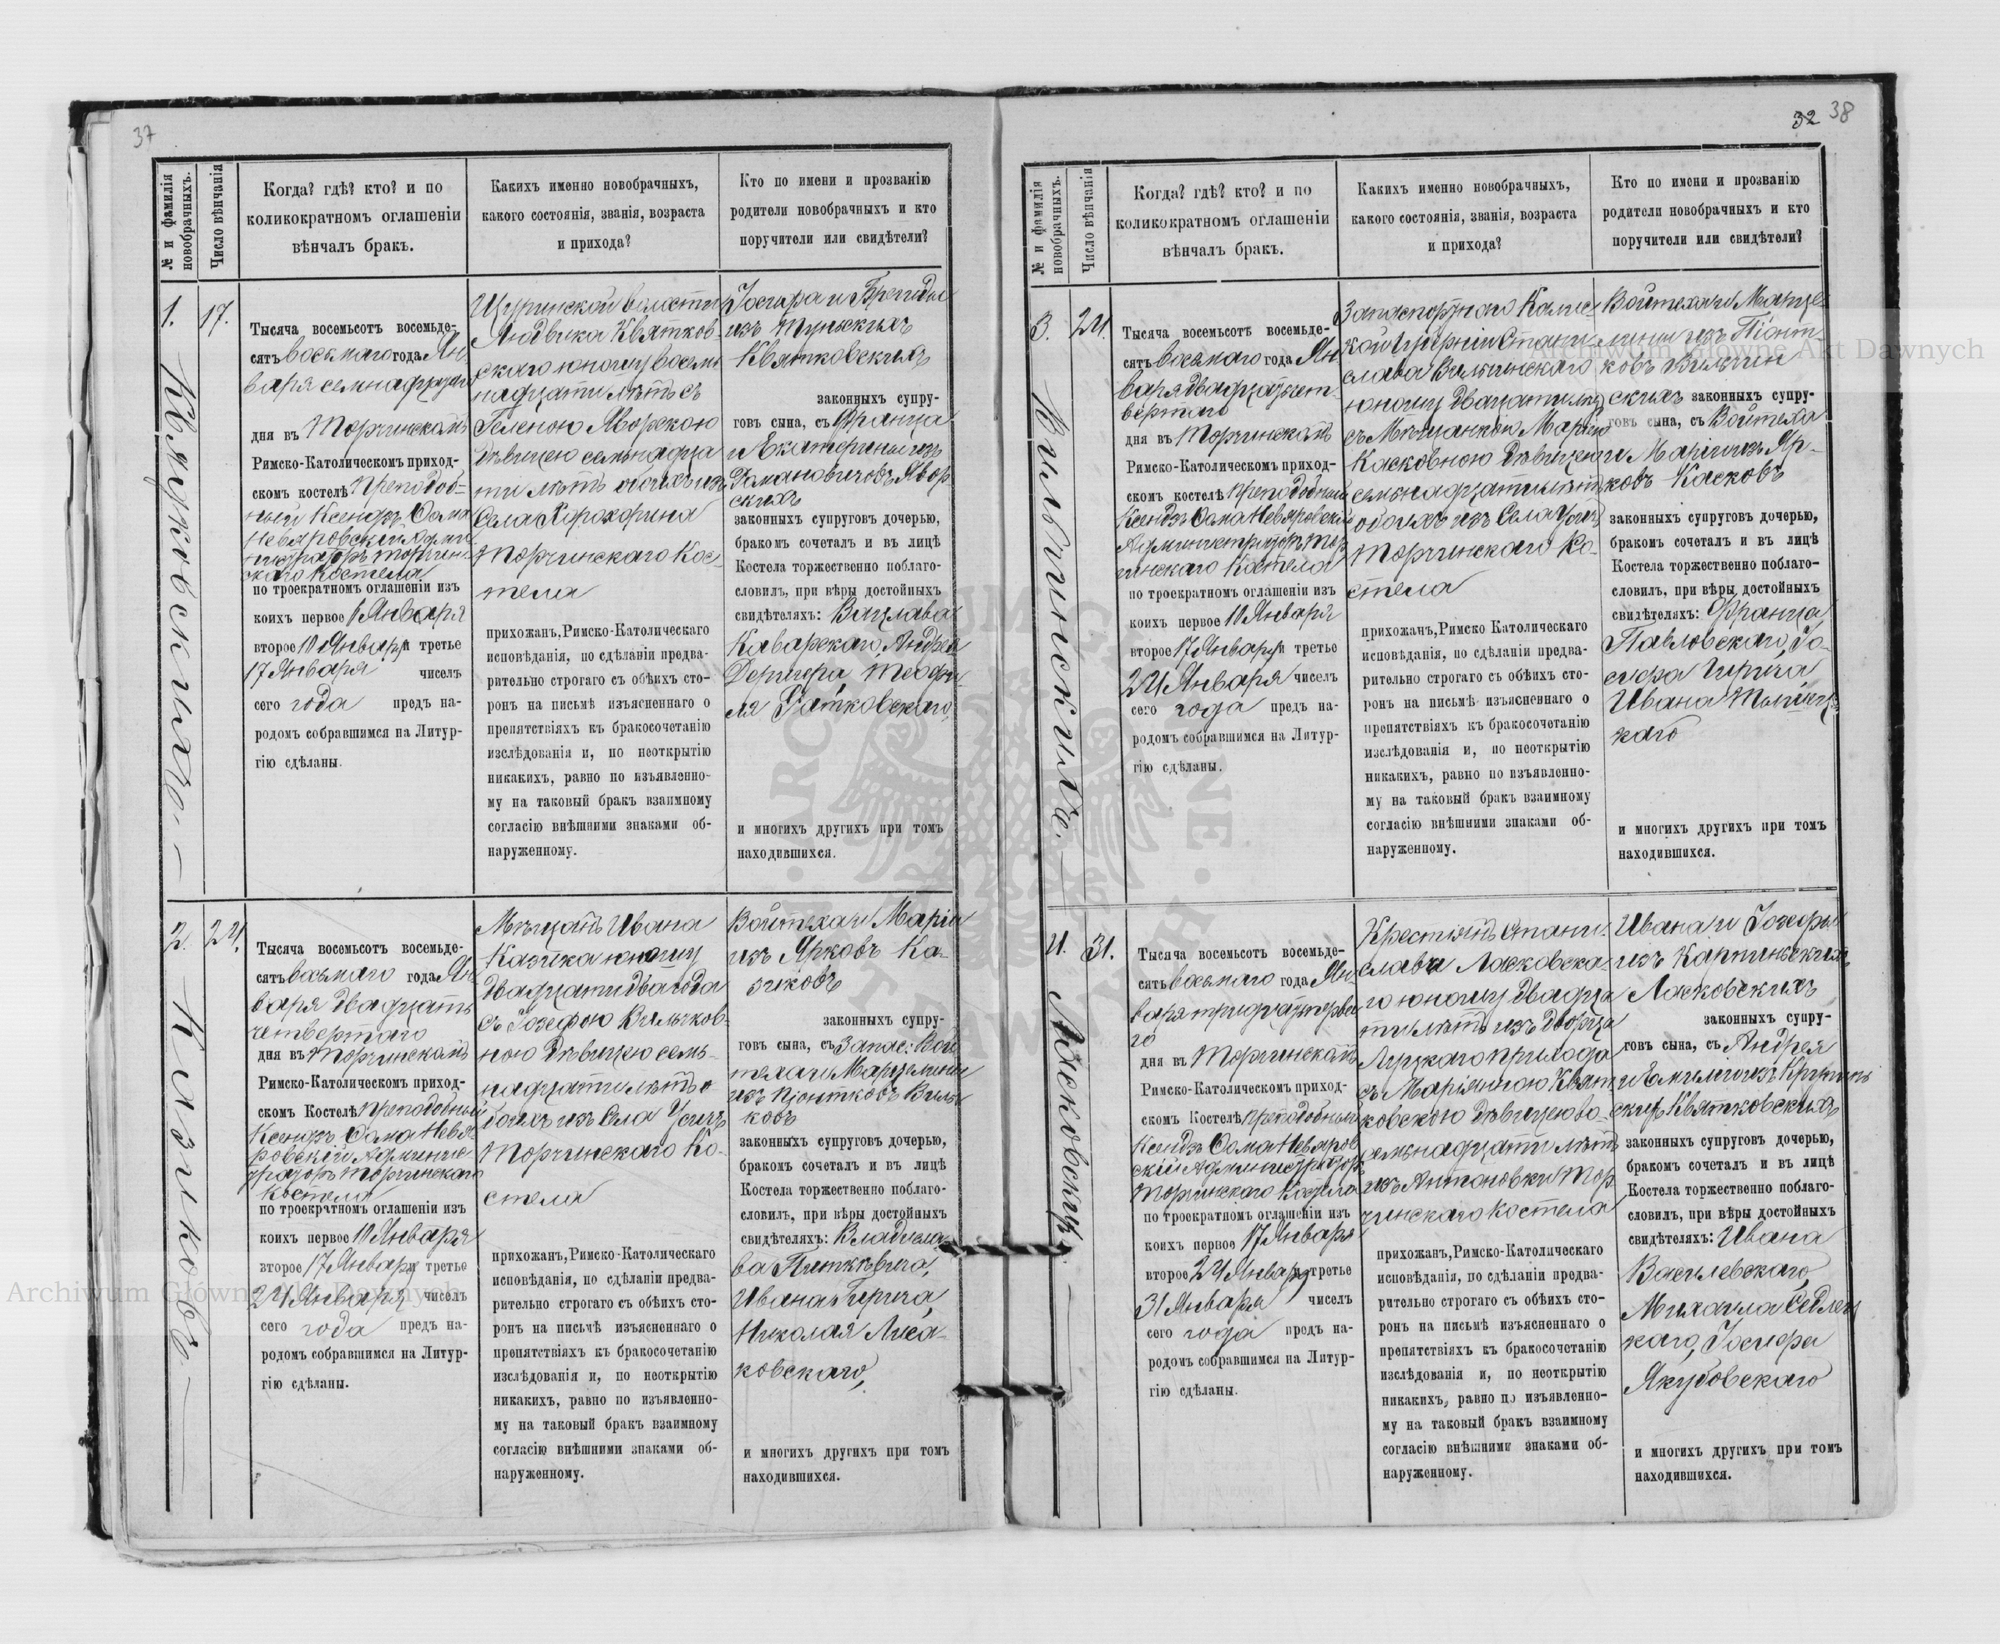 37
№ и фамилія новобрачныхъ.
Число вѣнчанія
Когда? гдѣ? кто? и по
коликократномъ оглашеніи
вѣнчалъ бракъ.
Какихъ именно новобрачныхъ,
какого состоянія, званія, возраста
и прихода?
Кто по имени и прозванію
родители новобрачныхъ и кто
поручители или свидѣтели?
1.
17.
Тысяча восемьсотъ восемьде-
сятъ восьмаго года Ян-
варя семнадцатаго
дня въ Торчинскомъ
Римско-Католическомъ приход-
скомъ костелѣ Преподоб-
ный Ксендзъ Фома
Невяровскій Адми-
нистраторъ Торчин-
скаго Костела
по троекратномъ оглашеніи изъ
коихъ первое 6 Января
второе 10 Января и третье
17 Января чиселъ
сего года предъ на-
родомъ собравшимся на Литур-
гію сдѣланы.
Щуринской волости
Людвика Квятков-
скаго юношу восем-
надцати лѣтъ съ
Геленою Яворскою
дѣвицею семьнадца
ти лѣтъ обоихъ изъ
Села Хорохорина
Торчинскаго Кос-
тела
прихожанъ, Римско-Католическаго
исповѣданія, по сдѣланіи предва-
рительно строгаго съ обѣихъ сто-
ронъ на письмѣ изъясненнаго о
препятствіяхъ къ бракосочетанію
изслѣдованія и, по неоткрытію
никакихъ, равно по изъявленно-
му на таковый бракъ взаимному
согласію внѣшними знаками об-
наруженному.
Іосифа и Бригиды
изъ
Квятковскихъ
законныхъ супру-
говъ сына, съ Франца
и Екатерины изъ
Романовичовъ Явор
скихъ
законныхъ супруговъ дочерью,
бракомъ сочеталъ и въ лицѣ
Костела торжественно поблаго-
словилъ, при вѣры достойныхъ
свидѣтеляхъ: Вацлава
Каварскаго, Андрея
Теофи-
ля
и многихъ другихъ при томъ
находившихся.
2.
24.
Казиковъ
Тысяча восемьсотъ восемьде-
сятъ восьмаго года Ян-
варя двадцать
четвертаго
дня въ Торчинскомъ
Римско-Католическомъ приход-
скомъ Костелѣ Преподобный
Ксендзъ Фома Невя-
ровскій Админис-
траторъ Торчинскаго
Костела
по троекратномъ оглашеніи изъ
коихъ первое 10 Января
второе 17 Января третье
24 Января чиселъ
сего года предъ на-
родомъ собравшимся на Литур-
гію сдѣланы.
Мѣщанъ Ивана
Казика юношу
двадцати два года
съ Іозефою Вильчков-
ною дѣвицею семь-
надцати лѣтъ о
боихъ изъ Села Усичъ
Торчинскаго Ко-
стела
прихожанъ, Римско-Католическаго
исповѣданія, по сдѣланіи предва-
рительно строгаго съ обѣихъ сто-
ронъ на письмѣ изъясненнаго о
препятствіяхъ къ бракосочетанію
изслѣдованія и, по неоткрытію
никакихъ, равно по изъявленно-
му на таковый бракъ взаимному
согласію внѣшними знаками об-
наруженному.
Войтеха и Маріи
изъ Ярковъ Ка-
зиковъ
законныхъ супру-
говъ сына, съ Запас: Вой
теха и Марцелины
изъ Піонтковъ Виль
ковъ
законныхъ супруговъ дочерью,
бракомъ сочеталъ и въ лицѣ
Костела торжественно поблаго-
словилъ, при вѣры достойныхъ
свидѣтеляхъ: Владисла-
ва
Ивана
Николая Лиса-
ковскаго,
и многихъ другихъ при томъ
находившихся.
32 38
№ и фамилія новобрачныхъ.
Число вѣнчанія
Когда? гдѣ? кто? и по
коликократномъ оглашеніи
вѣнчалъ бракъ.
Какихъ именно новобрачныхъ,
какого состоянія, званія, возраста
и прихода?
Кто по имени и прозванію
родители новобрачныхъ и кто
поручители или свидѣтели?
3.
24.
Вильчинскихъ
Тысяча восемьсотъ восемьде-
сятъ восьмаго года Ян
варя двадцать чет-
вертаго
дня въ Торчинскомъ
Римско-Католическомъ приход-
скомъ костелѣ Преподобный
Ксендзъ Фома Невяровскій
Администраторъ Тор
чинскаго Костела
по троекратномъ оглашеніи изъ
коихъ первое 10 Января
второе 17 Января и третье
24 Января чиселъ
сего года предъ на-
родомъ собравшимся на Литур-
гію сдѣланы.
Запаснаго Калис-
кой Губерніи Стани
слава Вильчинскаго
юношу двадцати лѣтъ
съ Мѣщанкою Маріею
Касковною дѣвицею
семьнадцати лѣтъ
обоихъ изъ Села Усичъ
Торчинскаго Ко-
стела
прихожанъ, Римско Католическаго
исповѣданія, по сдѣланіи предва-
рительно строгаго съ обѣихъ сто-
ронъ на письмѣ изъясненнаго о
препятствіяхъ къ бракосочетанію
изслѣдованія и, по неоткрытію
никакихъ, равно по изъявленно-
му на таковый бракъ взаимному
согласію внѣшними знаками об-
наруженному.
Войтеха и Марце-
лины изъ Піонт-
ковъ Вильчин
скихъ законныхъ супру-
говъ сына, съ Войтеха
и Маріи изъ Яр-
ковъ Касковъ
законныхъ супруговъ дочерью,
бракомъ сочеталъ и въ лицѣ
Костела торжественно поблаго-
словилъ, при вѣры достойныхъ
свидѣтеляхъ: Франца
Павловскаго, Іо-
сифа
Ивана
каго
и многихъ другихъ при томъ
находившихся.
4.
31.
Лясковскихъ
Тысяча восемьсотъ восемьде-
сятъ восьмаго года Ян-
варя тридцать перва
го
дня въ Торчинскомъ
Римско-Католическомъ приход-
скомъ Костелѣ Преподобный
Ксендзъ Фома Невяров
скій Администраторъ
Торчинскаго Костела
по троекратномъ оглашеніи изъ
коихъ первое 17 Января
второе 24 Января третье
31 Января чиселъ
сего года предъ на-
родомъ собравшимся на Литур-
гію сдѣланы.
Крестіянъ Стани-
слава Лясковска-
го юношу двадца
ти лѣтъ изъ Дворца
Луцкаго прихода
съ Маріянною Квят
ковскою дѣвицею во-
семьнадцати лѣтъ
изъ Антоновки Тор
чинскаго Костела
прихожанъ, Римско-Католическаго
исповѣданія, по сдѣланіи предва-
рительно строгаго съ обѣихъ сто-
ронъ на письмѣ изъясненнаго о
препятствіяхъ къ бракосочетанію
изслѣдованія и, по неоткрытію
никакихъ, равно по изъявленно-
му на таковый бракъ взаимному
согласію внѣшними знаками об-
наруженному.
Ивана и Іозефы
изъ Карпинскихъ
Лясковскихъ
законныхъ супру-
говъ сына, съ Андрея
и Емиліи изъ Крупин
скихъ Квятковскихъ
законныхъ супруговъ дочерью,
бракомъ сочеталъ и въ лицѣ
Костела торжественно поблаго-
словилъ, при вѣры достойныхъ
свидѣтеляхъ: Ивана
Василевскаго,
Михаила Седлец
каго, Іосифа
Якубовскаго
и многихъ другихъ при томъ
находившихся.
Archiwum Główne Akt Dawnych
Archiwum Główne Akt Dawnych